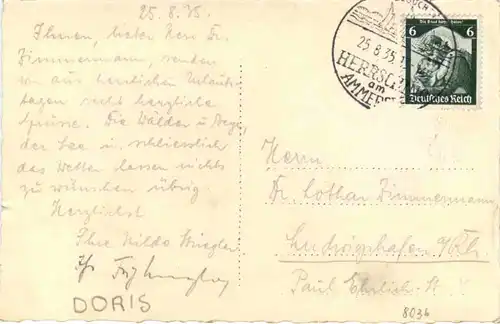 25.8.35.
Ihnen, lieber Herr Dr.
Zimmermann, senden
wir aus herrlichen Urlaubs-
tagen recht herzliche
Grüsse. Die Wälder u. Berge,
der See u. schliesslich
das Wetter lassen nichts
zu wünschen übrig.
Herzlichst
Ihre Hilde
DORIS
25.8.35
HERRSCH
am
AMMERS
6 6
Deutsches Reich
Herrn
Dr. Lothar Zimmermann,
Ludwigshafen
Paul Ehrlich-St.
8036